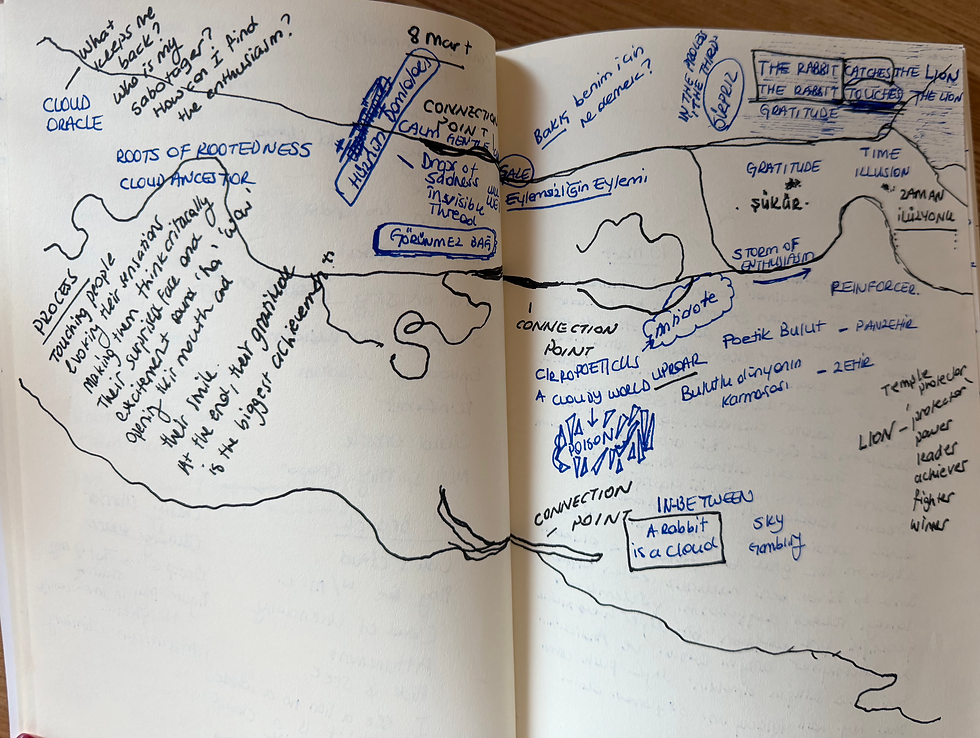 What
keeps me
back?
Who is my
sabotager?
How can I find
the enthusiasm?
CLOUD
ORACLE
8 Mart
ROOTS OF ROOTEDNESS
CLOUD ANCESTOR
CONNECTION
POINT
CALM GENTLE
Drops of
sadness
invisible
Thread
GÖRÜNMEZ BAĞ
PROCESS
Touching people
evoking their sensations
Making them think critically
Their surprised face and
excitement
opening their mouth and
their smile.
At the end, their gratitude
is the biggest achievement
Bakış benim için
ne demek?
IN THE PROCESS
THE THIRD
THE RABBIT CATCHES THE LION
THE RABBIT TOUCHES THE LION
GRATITUDE
Eylemsizliğin Eylemi
GRATITUDE
ŞÜKÜR
TIME
ILLUSION
ZAMAN
İLÜZYONU
STORM OF
ENTHUSIASM
REINFORCER.
CONNECTION
POINT
Antidote
CIRROPOETICUS
A CLOUDY WORLD UPROAR
POISON
Poetik Bulut - PANZEHİR
Bulutlu dünyanın - ZEHİR
karmaşası
Temple protector
LION - protector
power
leader
achiever
fighter
winner
CONNECTION
POINT
IN-BETWEEN
A Rabbit
is a cloud
SKY